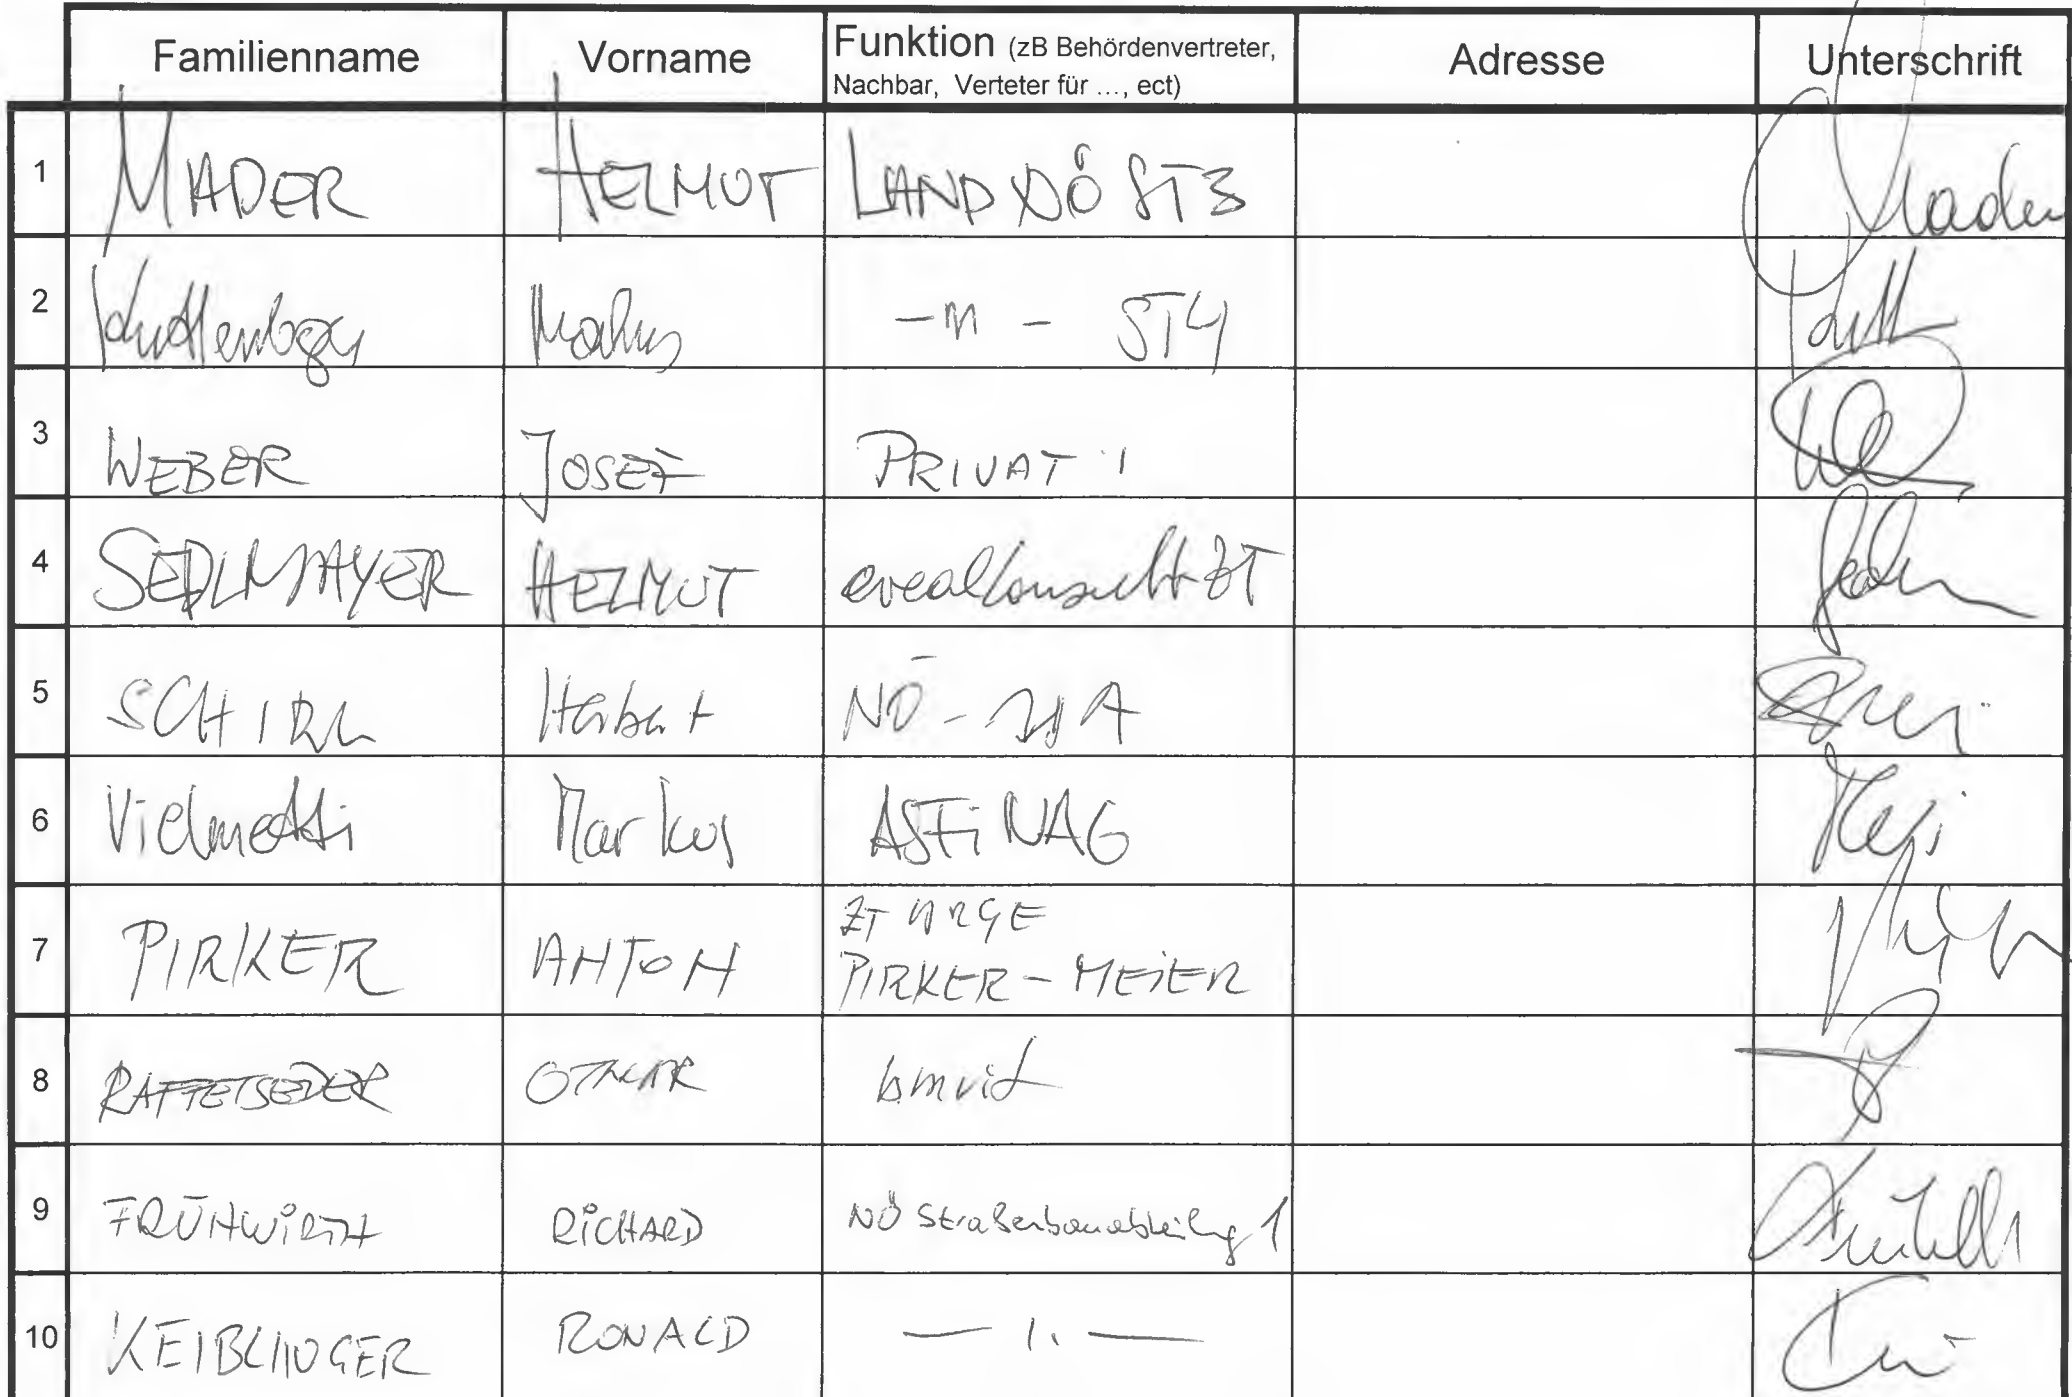 Familienname Vorname Funktion (zB Behördenvertreter, Adresse Unterschrift
Nachbar, Verteter für ..., ect)
1 MADER HELMUT LAND NÖ ST3 Mader
2 -"- ST4
3 WEBER JOSEF PRIVAT
4 SEDLMAYER HELMUT arealConsult ZT
5 SCHIRL Herbert NÖ -
6 Vielmetti Markus ASFiNAG
7 PIRKER ANTON ZT ARGE
PIRKER - MEiER
8 RAFFETSEDER OTMAR bmvit
9 FRÜHWiRTH RiCHARD NÖ Straßenbauabteilung 1
10 KEIBLINGER RONALD — 1. —